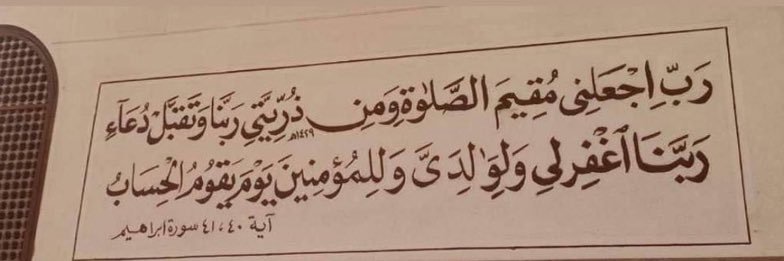 رَبِّ اِجْعَلْنِى مُقِيمَ الصَّلَوٰةِ وَمِن ذُرِّيَّتِي رَبَّنَا وَتَقَبَّلْ دُعَآءِ
١٤٢٩هـ
رَبَّنَا ٱغْفِرْ لِي وَلِوَٰلِدَىَّ وَلِلْمُؤْمِنِينَ يَوْمَ يَقُومُ الْحِسَابُ
آية ٤٠،٤١ سورة ابراهيم